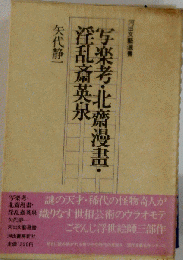 河出文藝選書
写楽考・北齋漫畫・
淫乱斎英泉
矢代静一
写楽考・
北齋漫畫・
淫乱斎英泉
矢代静一
河出文藝選書
謎の天才・稀代の怪物奇人が
織りなす世相芸術のウラオモテ
ごぞんじ浮世絵師三部作